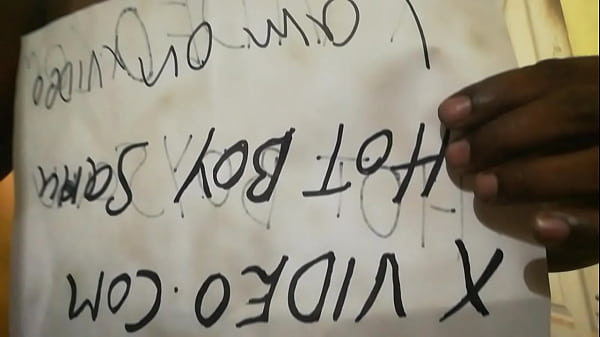 X VIDEO.COM
HOT BOY
I am on XVIDEO